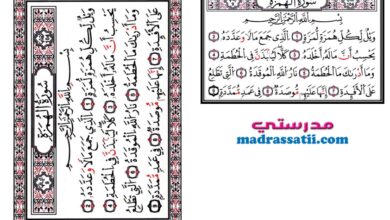 سُورَةُ الهُمَزَةِ
بِسْمِ اللَّهِ الرَّحْمَٰنِ الرَّحِيمِ
وَيْلٌ لِكُلِّ هُمَزَةٍ لُمَزَةٍ ۝ الَّذِي جَمَعَ مَالًا وَعَدَّدَهُ ۝
يَحْسِبُ أَنَّ مَالَهُ أَخْلَدَهُ ۝ كَلَّا لَيُنْبَذَنَّ فِي الْحُطَمَةِ ۝
وَمَا أَدْرَىٰكَ مَا الْحُطَمَةُ ۝ نَارُ اللَّهِ الْمُوقَدَةُ ۝ الَّتِي تَطَّلِعُ
عَلَى الْأَفْئِدَةِ ۝ إِنَّهَا عَلَيْهِمْ مُوصَدَةٌ ۝ فِي عَمَدٍ مُمَدَّدَةٍ
سُورَةُ الهُمَزَةِ
بِسْمِ اللَّهِ الرَّحْمَٰنِ الرَّحِيمِ
وَيْلٌ لِكُلِّ هُمَزَةٍ لُمَزَةٍ ۝ الَّذِي جَمَعَ مَالًا وَعَدَّدَهُ ۝
يَحْسِبُ أَنَّ مَالَهُ أَخْلَدَهُ ۝ كَلَّا لَيُنْبَذَنَّ فِي الْحُطَمَةِ ۝
وَمَا أَدْرَىٰكَ مَا الْحُطَمَةُ ۝ نَارُ اللَّهِ الْمُوقَدَةُ ۝ الَّتِي تَطَّلِعُ
عَلَى الْأَفْئِدَةِ ۝ إِنَّهَا عَلَيْهِمْ مُوصَدَةٌ ۝ فِي عَمَدٍ مُمَدَّدَةٍ
مدرستي
madrassatii.com